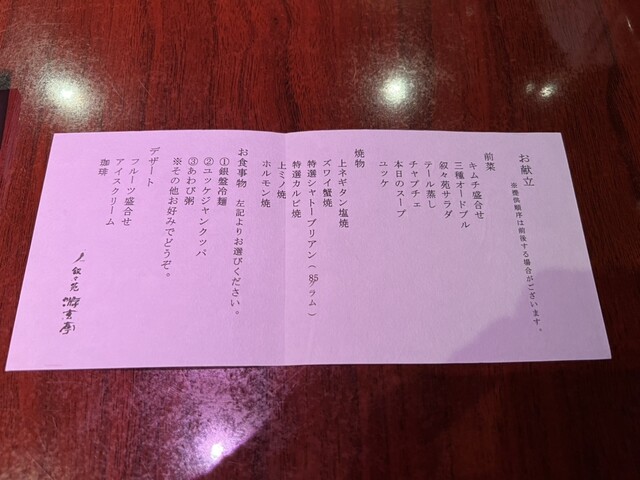 お献立
※提供順序は前後する場合がございます。
前菜
キムチ盛合せ
三種オードブル
叙々苑サラダ
テール蒸し
チャプチェ
本日のスープ
ユッケ
焼物
上ネギタン塩焼
ズワイ蟹焼
特選シャトーブリアン(85グラム)
特選カルビ焼
上ミノ焼
ホルモン焼
お食事物 左記よりお選びください。
①銀盤冷麺
②ユッケジャンクッパ
③あわび粥
※その他お好みでどうぞ。
デザート
フルーツ盛合せ
アイスクリーム
珈琲
叙々苑 游玄亭